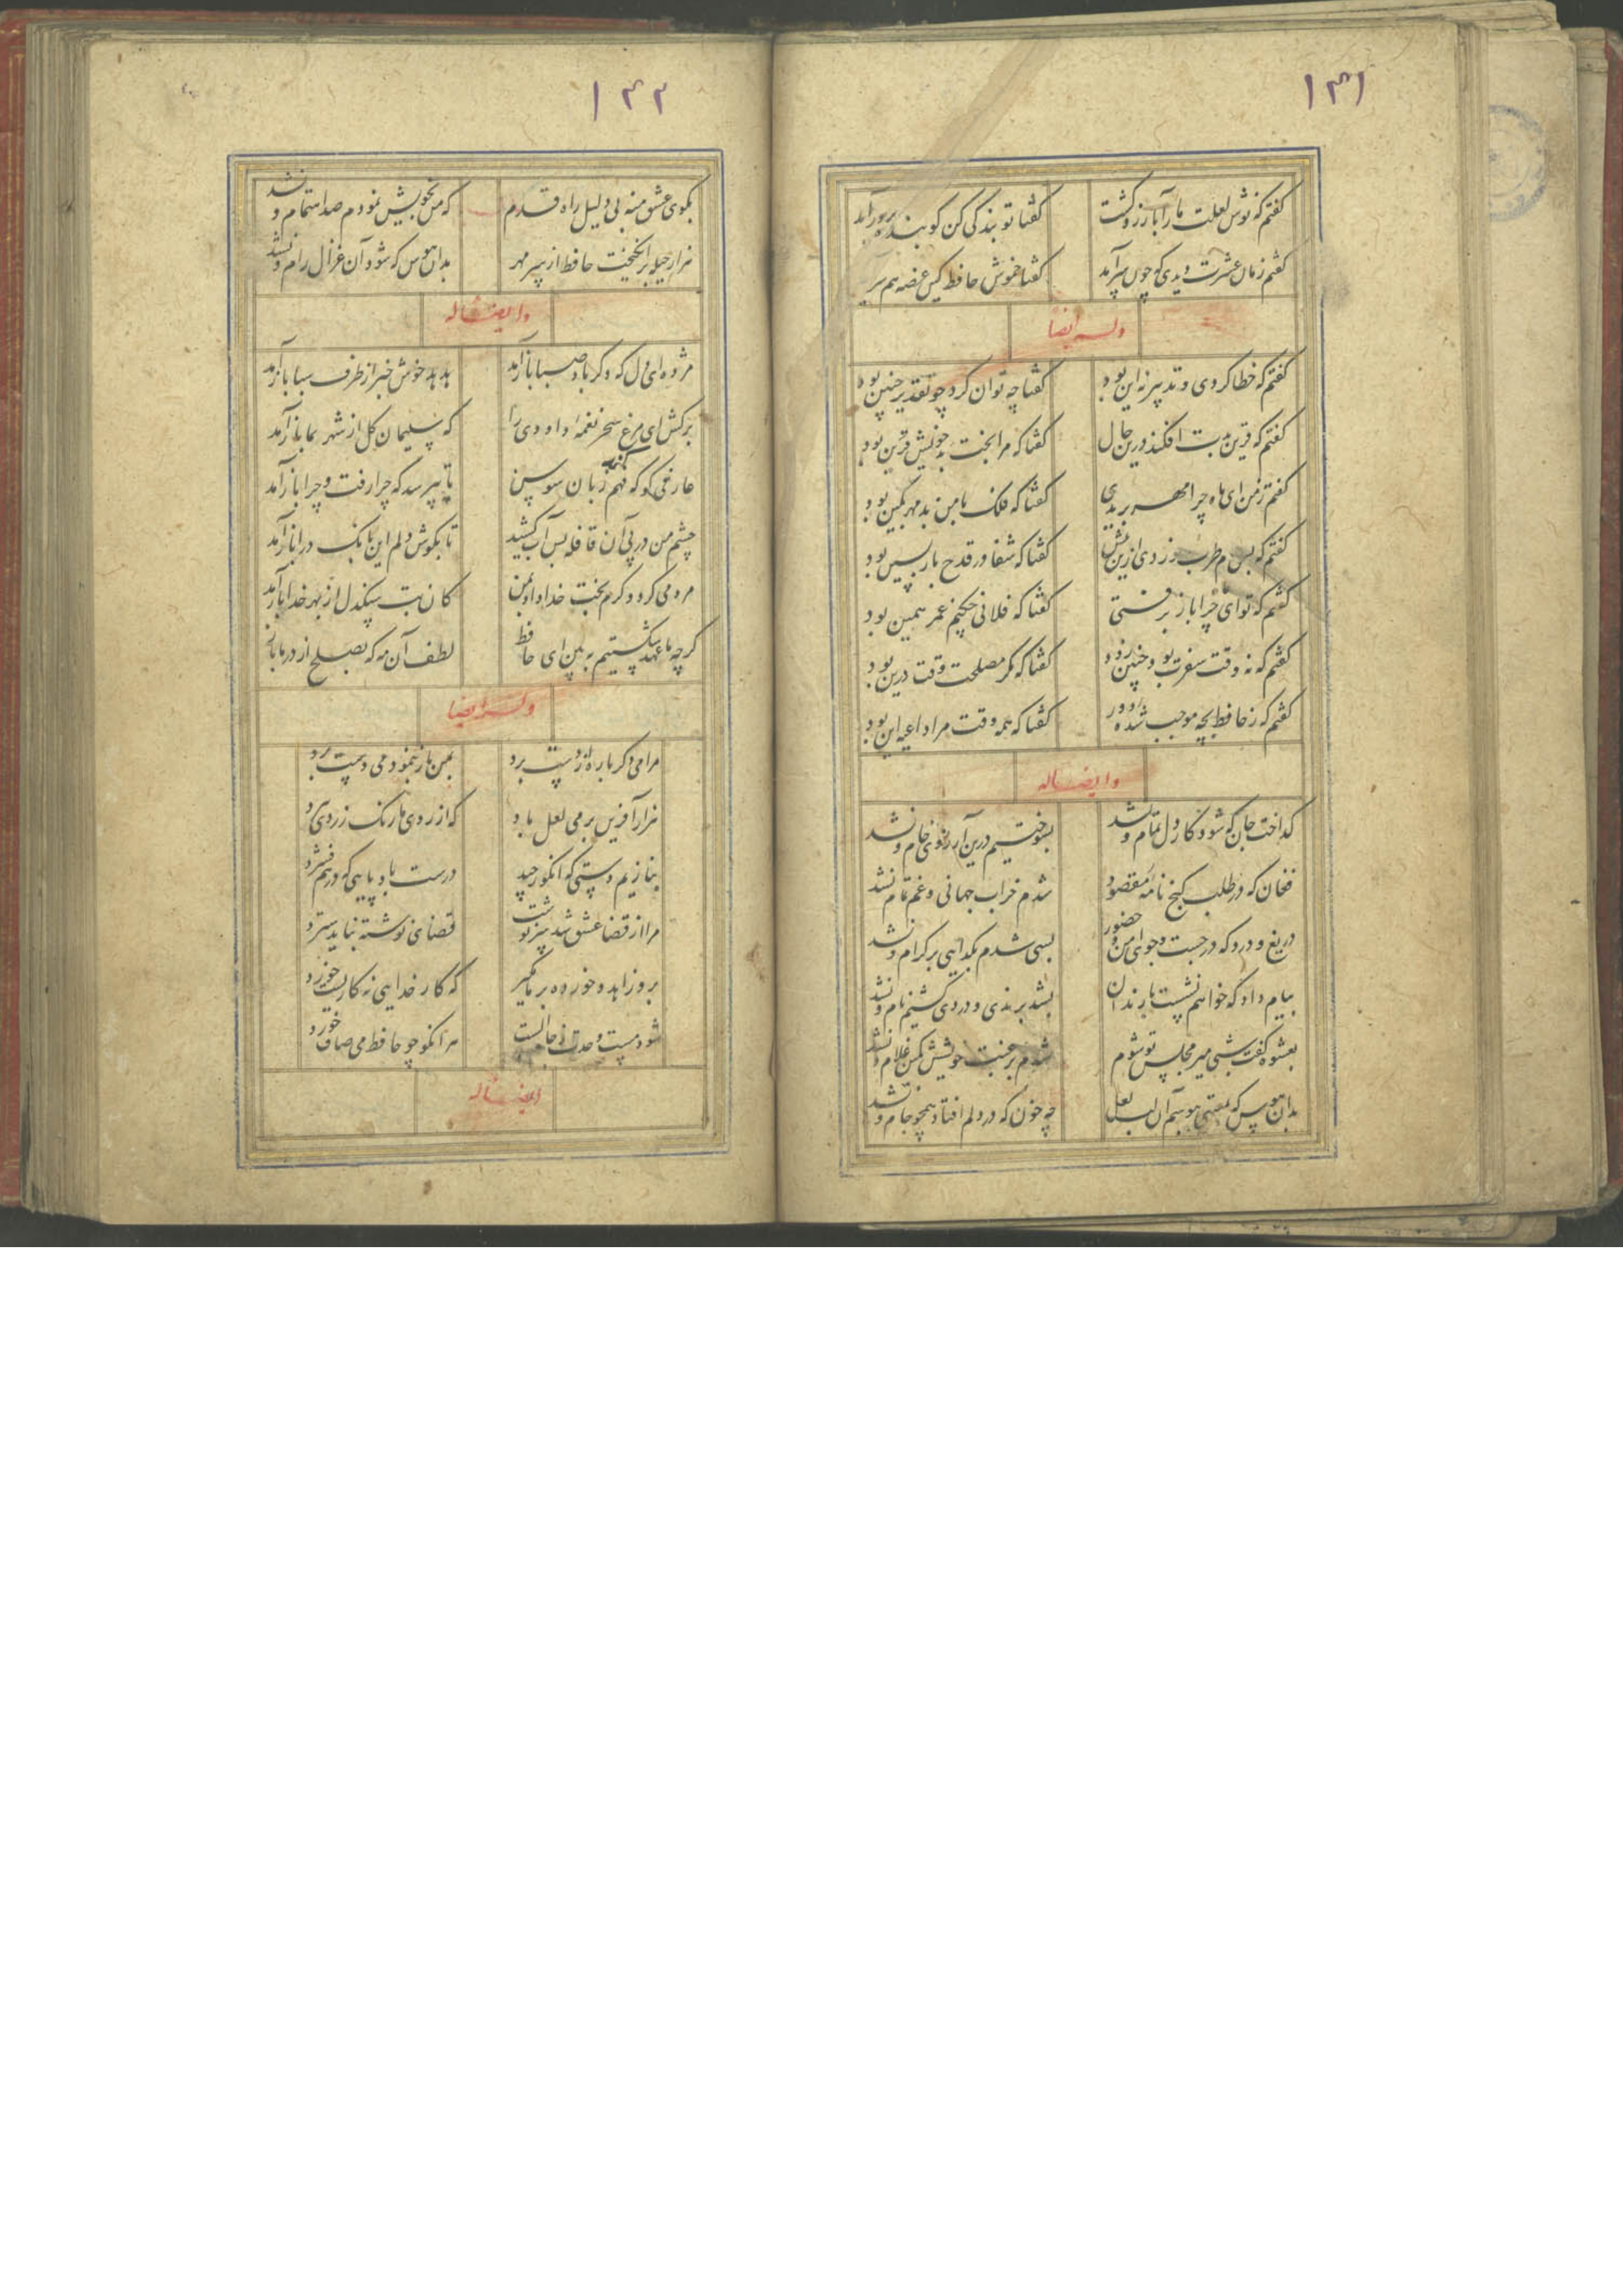 ۱۳۱
گفتم که نوش لعلت ما را بآرزو کشت
گفتا تو بندگی کن کو بنده پرور آید
گفتم زمان عشرت دیدی که چون سر آمد
گفتا خموش حافظ کین غصه هم سر آید
وله ایضا
گفتم که خطا کردی و تدبیر نه این بود
گفتا چه توان کرد چو تقدیر چنین بود
گفتم که قرین بدت افکند درین حال
گفتا که مرا بخت بد خویش قرین بود
گفتم ز من ای ماه چرا مهر بریدی
گفتا که فلک با من بد مهر بکین بود
گفتم که بسی جام طرب خوردی ازین پیش
گفتا که شفا در قدح باز پسین بود
گفتم که تو ای عمر چرا باز برفتی
گفتا که فلانی چکنم عمر همین بود
گفتم که نه وقت سفرت بود چنین زود
گفتا که مگر مصلحت وقت درین بود
گفتم که ز حافظ بچه موجب شده دور
گفتا که همه وقت مرا داعیه این بود
و ایضا له
گداخت جان که شود کار دل تمام و نشد
بسوختیم درین آرزوی خام و نشد
فغان که در طلب گنج نامه مقصود
شدم خراب جهانی و غم تمام نشد
دریغ و درد که در جست و جوی امن و حضور
بسی شدم بگدایی بر کرام و نشد
پیام داد که خواهم نشست با رندان
بشد برندی و دردی کشیم نام و نشد
بعشوه گفت شبی میر مجلس تو شوم
شدم برغبت خویشش کمین غلام و نشد
بدان هوس که بمستی ببوسم آن لب لعل
چه خون که در دلم افتاد همچو جام و نشد
۱۳۲
بکوی عشق منه بی دلیل راه قدم
که من بخویش نمودم صد اهتمام و نشد
هزار حیله برانگیخت حافظ از سر مهر
بدان هوس که شود آن غزال رام و نشد
و ایضا له
مژده ای دل که دگر باد صبا باز آمد
هدهد خوش خبر از طرف سبا باز آمد
برکش ای مرغ سحر نغمه داودی را
که سلیمان گل از شهر بما باز آمد
عارفی کو که کند فهم زبان سوسن
تا بپرسد که چرا رفت و چرا باز آمد
چشم من در پی آن قافله بس آب کشید
تا بگوش دلم این بانگ درا باز آمد
مردمی کرد و کرم بخت خداداد بمن
کان بت سنگدل از بهر خدا باز آمد
گرچه ما عهد شکستیم ببین ای حافظ
لطف آن مه که بصلح از در ما باز
وله ایضا
مرا می دگر باره از دست برد
بمن باز بنمود می دست برد
هزار آفرین بر می لعل باد
که از روی ما رنگ زردی برد
بنازیم دستی که انگور چید
درست باد پایی که در هم فشرد
مرا از قضا عشق شد سرنوشت
قضای نوشته نباید سترد
برو زاهد و خورده بر ما مگیر
که کار خدایی نه کاریست خورد
شود مست وحدت ز جام الست
هر انکو چو حافظ می صاف خورد
ایضا له